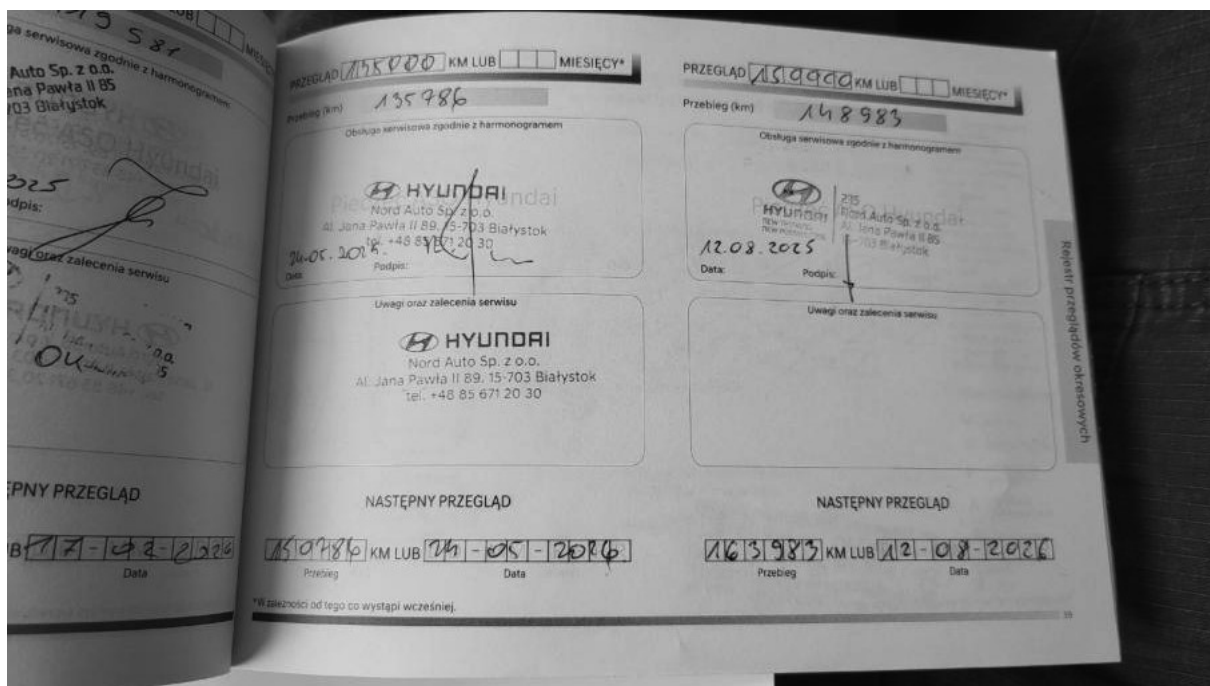 19 581
ga serwisowa zgodnie z harmonogramem
Auto Sp. z o.o.
Jana Pawła II 85
703 Białystok
2025
dpis:
wagi oraz zalecenia serwisu
235
OK
ĘPNY PRZEGLĄD
B 17-02-2026
Data
PRZEGLĄD 135000 KM LUB MIESIĘCY*
Przebieg (km) 135786
Obsługa serwisowa zgodnie z harmonogramem
HYUNDAI
Nord Auto Sp. z o.o.
Al. Jana Pawła II 89, 15-703 Białystok
tel. +48 85 671 20 30
24.05.2025.
Data: Podpis:
Uwagi oraz zalecenia serwisu
HYUNDAI
Nord Auto Sp. z o.o.
Al. Jana Pawła II 89, 15-703 Białystok
tel. +48 85 671 20 30
NASTĘPNY PRZEGLĄD
150786 KM LUB 24-05-2026
Przebieg Data
*W zależności od tego co wystąpi wcześniej.
PRZEGLĄD KM LUB MIESIĘCY*
Przebieg (km) 148983
Obsługa serwisowa zgodnie z harmonogramem
HYUNDAI
235
Nord Auto Sp. z o.o.
Al. Jana Pawła II 85
15-703 Białystok
12.08.2025
Data: Podpis:
Uwagi oraz zalecenia serwisu
NASTĘPNY PRZEGLĄD
163983 KM LUB 12-08-2026
Przebieg Data
Rejestr przeglądów okresowych